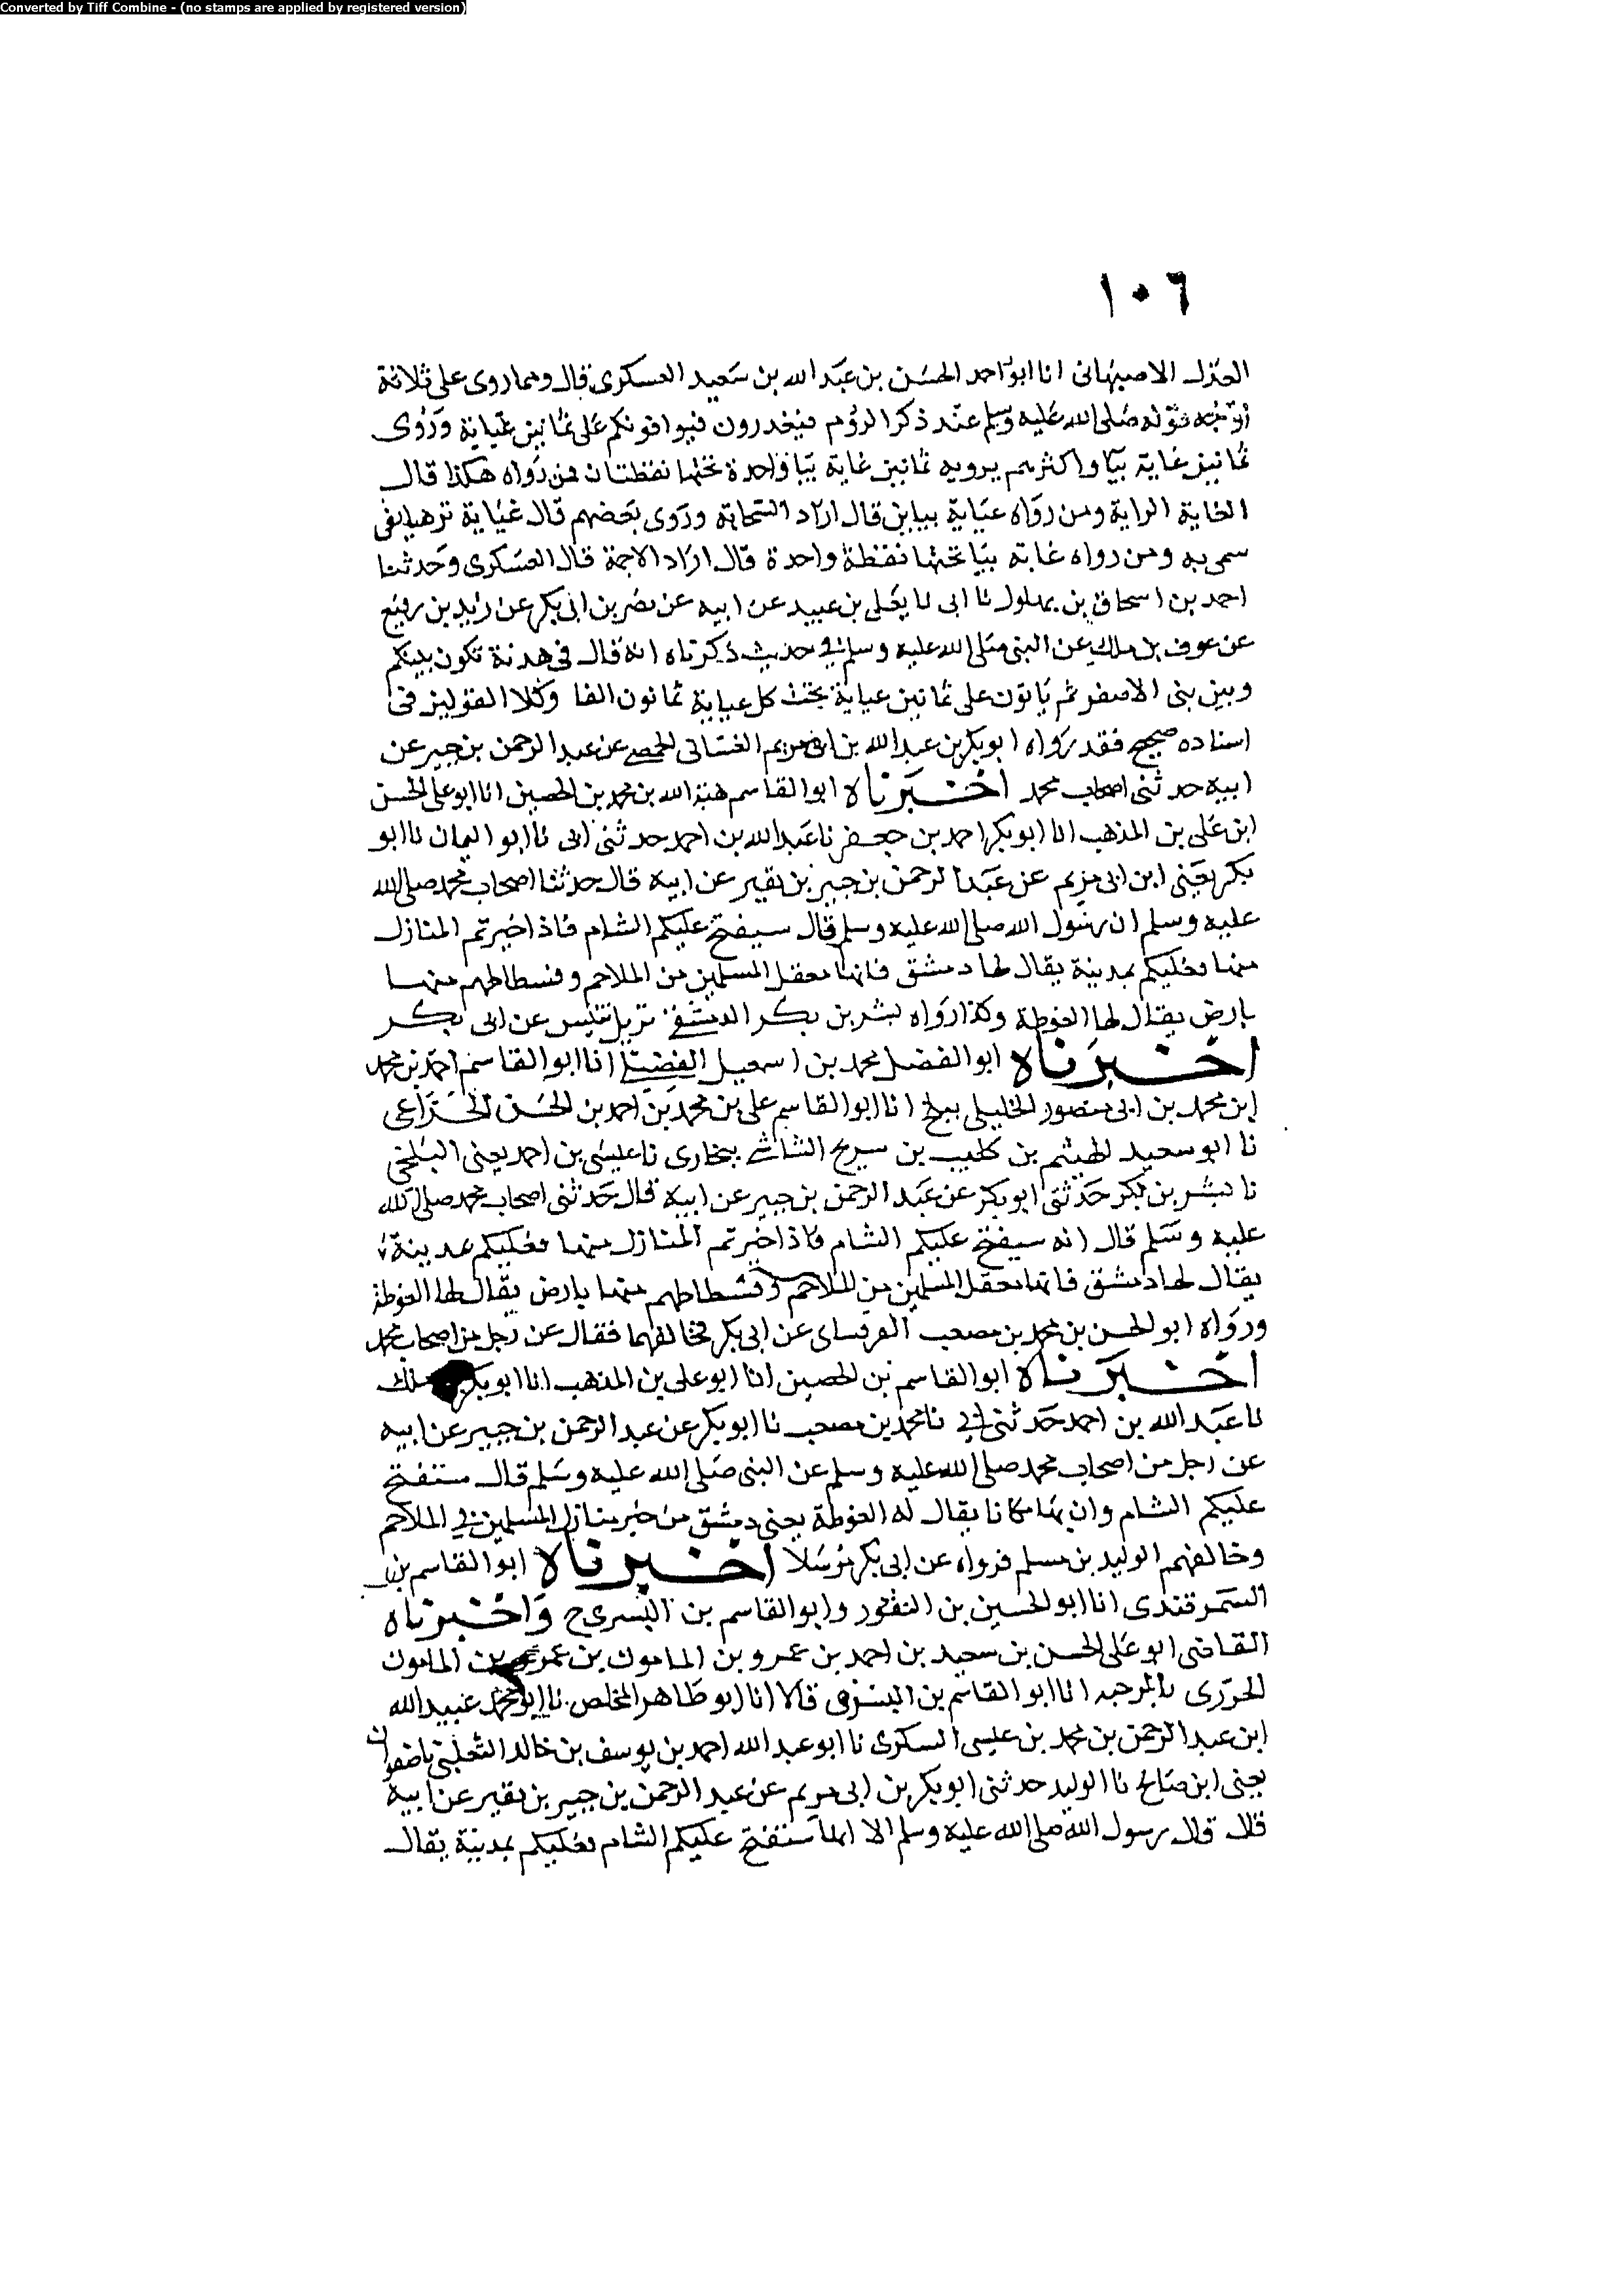 Converted by Tiff Combine - (no stamps are applied by registered version)
١٠٦
العدل الاصبهانى انا ابو احمد الحسن بن عبد الله بن سعيد العسكرى قال ومما روى على ثلاثة
اوجه قوله صلى الله عليه وسلم عند ذكر الروم فيغدرون فيوافونكم على ثمانين غياية وروى
ثمانين غاية بيا واكثرهم يرويه ثمانين غاية بيا واحدة تحتها نقطتان من رواه هكذا قال
الغاية الراية ومن رواه غياية بيايين قال اراد السحابة وروى بعضهم قال غياية ترهيا فى
سمى به ومن رواه غابة ببا تحتها نقطة واحدة قال اراد الاجمة قال العسكرى وحدثنا
احمد بن اسحاق بن بهلول نا ابى نا يعلى بن عبيد عن ابيه عن نصر بن ابى بكر عن زيد بن رفيع
عن عوف بن ملك عن النبى صلى الله عليه وسلم فى حديث ذكرناه انه قال فى هدنة تكون بينكم
وبين بنى الاصفر ثم ياتون على ثمانين غياية تحت كل غياية ثمانون الفا وكلا القولين فى
اسناده صحيح فقد رواه ابو بكر بن عبد الله بن ابى مريم الغسانى الحمصى عن عبد الرحمن بن جبير عن
ابيه حدثنى اصحاب محمد اخبرناه ابو القاسم هبة الله بن محمد بن الحصين انا ابو على الحسن
ابن على بن المذهب انا ابو بكر احمد بن جعفر نا عبد الله بن احمد حدثنى ابى نا ابو اليمان نا ابو
بكر يعنى ابن ابى مريم عن عبد الرحمن بن جبير بن نفير عن ابيه قال حدثنا اصحاب محمد صلى الله
عليه وسلم ان رسول الله صلى الله عليه وسلم قال سيفتح عليكم الشام فاذا خيرتم المنازل
منها فعليكم بمدينة يقال لها دمشق فانها معقل المسلمين من الملاحم وفسطاطهم منها
بارض يقال لها الغوطة وكذا رواه بشر بن بكر الدمشقى نزيل تنيس عن ابى بكر
اخبرناه ابو الفضل محمد بن اسمعيل الفضيلى انا ابو القاسم احمد بن محمد
ابن محمد بن ابى منصور الخليلى ببلخ انا ابو القاسم على بن محمد بن احمد بن الحسن الخزاعى
نا ابو سعيد الهيثم بن كليب بن سريج الشاشى ببخارى نا عيسى بن احمد يعنى البلخى
نا بشر بن بكر حدثنى ابو بكر عن عبد الرحمن بن جبير عن ابيه قال حدثنى اصحاب محمد صلى الله
عليه وسلم قال انه سيفتح عليكم الشام فاذا خيرتم المنازل منها فعليكم بمدينة
يقال لها دمشق فانها معقل المسلمين من الملاحم وفسطاطهم منها بارض يقال لها الغوطة
ورواه ابو الحسن بن محمد بن مصعب القرقساى عن ابى بكر فخالفهما فقال عن رجل من اصحاب محمد
اخبرناه ابو القاسم بن الحصين انا ابو على بن المذهب انا ابو بكر بن ملك
نا عبد الله بن احمد حدثنى ابى نا محمد بن مصعب نا ابو بكر عن عبد الرحمن بن جبير عن ابيه
عن رجل من اصحاب محمد صلى الله عليه وسلم عن النبى صلى الله عليه وسلم قال ستفتح
عليكم الشام وان بها مكانا يقال له الغوطة يعنى دمشق من خير منازل المسلمين فى الملاحم
وخالفهم الوليد بن مسلم فرواه عن ابى بكر مرسلا اخبرناه ابو القاسم بن
السمرقندى انا ابو الحسين بن النقور وابو القاسم بن البسرى ح واخبرناه
القاضى ابو على الحسن بن سعيد بن احمد بن عمرو بن المامون بن عمرو بن المامون
الجزرى بالرحبة انا ابو القاسم بن البسرى قالا انا ابو طاهر المخلص نا ابو محمد عبيد الله
ابن عبد الرحمن بن محمد بن عيسى السكرى نا ابو عبد الله احمد بن يوسف بن خالد التغلبى نا صفوان
يعنى ابن صالح نا الوليد حدثنى ابو بكر بن ابى مريم عن عبد الرحمن بن جبير بن نفير عن ابيه
قال قال رسول الله صلى الله عليه وسلم الا انها ستفتح عليكم الشام فعليكم بمدينة يقال